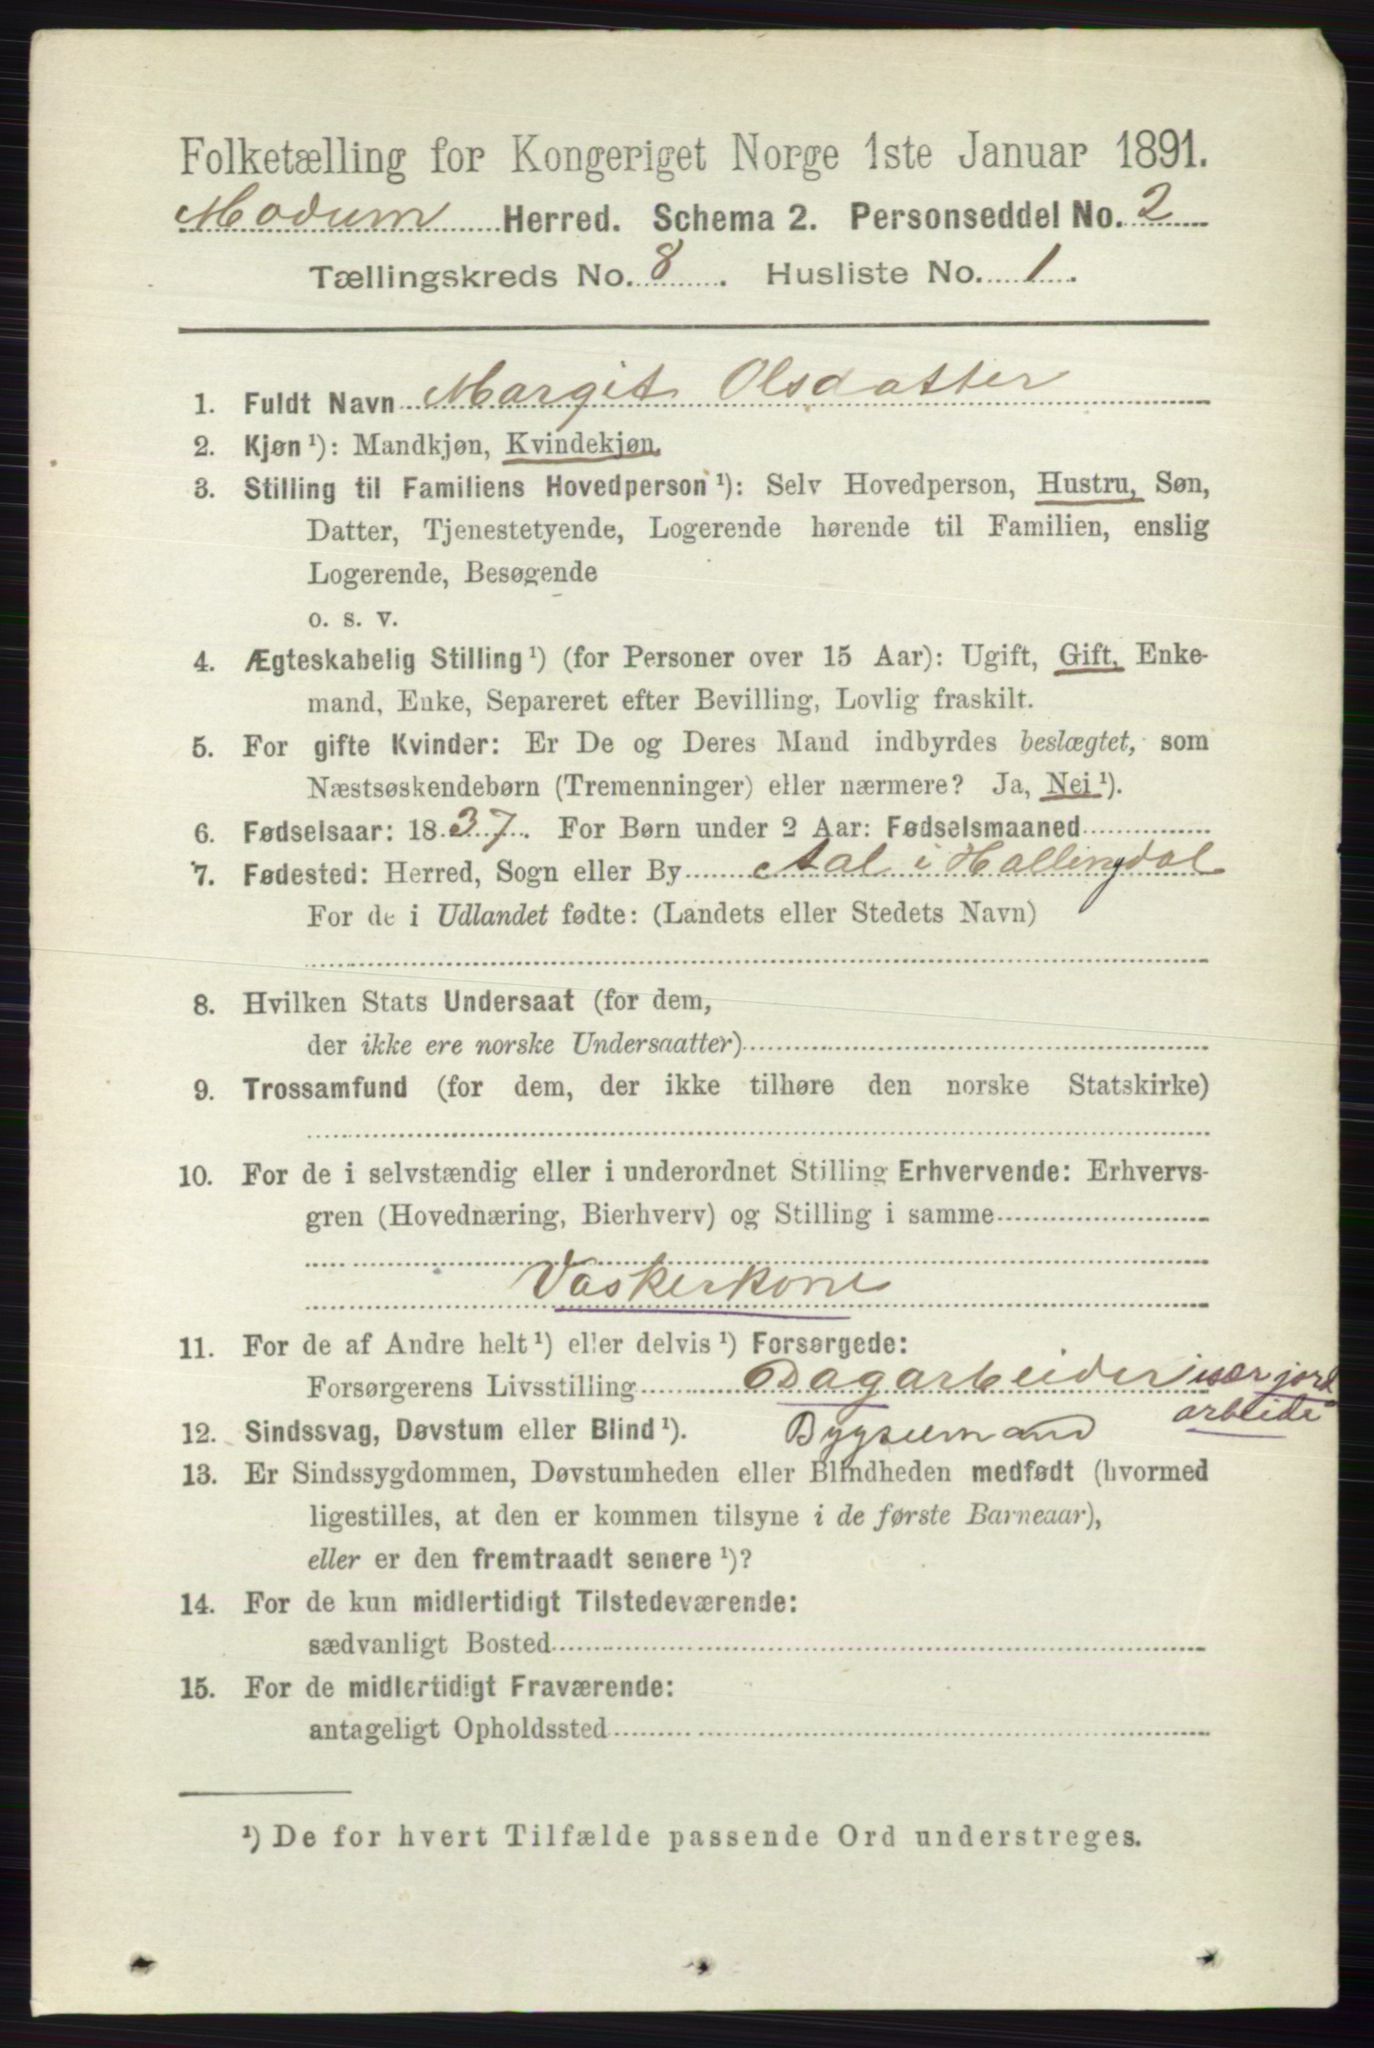 Folketælling for Kongeriget Norge 1ste Januar 1891.
Modum Herred. Schema 2. Personseddel No. 2
Tællingskreds No. 8. Husliste No. 1.
1. Fuldt Navn Margit Olsdatter
2. Kjøn ¹): Mandkjøn, Kvindekjøn.
3. Stilling til Familiens Hovedperson ¹): Selv Hovedperson, Hustru, Søn,
Datter, Tjenestetyende, Logerende hørende til Familien, enslig
Logerende, Besøgende
o. s. v.
4. Ægteskabelig Stilling ¹) (for Personer over 15 Aar): Ugift, Gift, Enke-
mand, Enke, Separeret efter Bevilling, Lovlig fraskilt.
5. For gifte Kvinder: Er De og Deres Mand indbyrdes beslægtet, som
Næstsøskendebørn (Tremenninger) eller nærmere? Ja, Nei ¹).
6. Fødselsaar: 1837. For Børn under 2 Aar: Fødselsmaaned
7. Fødested: Herred, Sogn eller By Aal i Hallingdal
For de i Udlandet fødte: (Landets eller Stedets Navn)
8. Hvilken Stats Undersaat (for dem,
der ikke ere norske Undersaatter)
9. Trossamfund (for dem, der ikke tilhøre den norske Statskirke)
10. For de i selvstændig eller i underordnet Stilling Erhvervende: Erhvervs-
gren (Hovednæring, Bierhverv) og Stilling i samme
Vaskerkone
11. For de af Andre helt ¹) eller delvis ¹) Forsørgede:
Forsørgerens Livsstilling Dagarbeider især jord
arbeide
12. Sindssvag, Døvstum eller Blind ¹). Bygselmand
13. Er Sindssygdommen, Døvstumheden eller Blindheden medfødt (hvormed
ligestilles, at den er kommen tilsyne i de første Barneaar),
eller er den fremtraadt senere ¹)?
14. For de kun midlertidigt Tilstedeværende:
sædvanligt Bosted
15. For de midlertidigt Fraværende:
antageligt Opholdssted
¹) De for hvert Tilfælde passende Ord understreges.